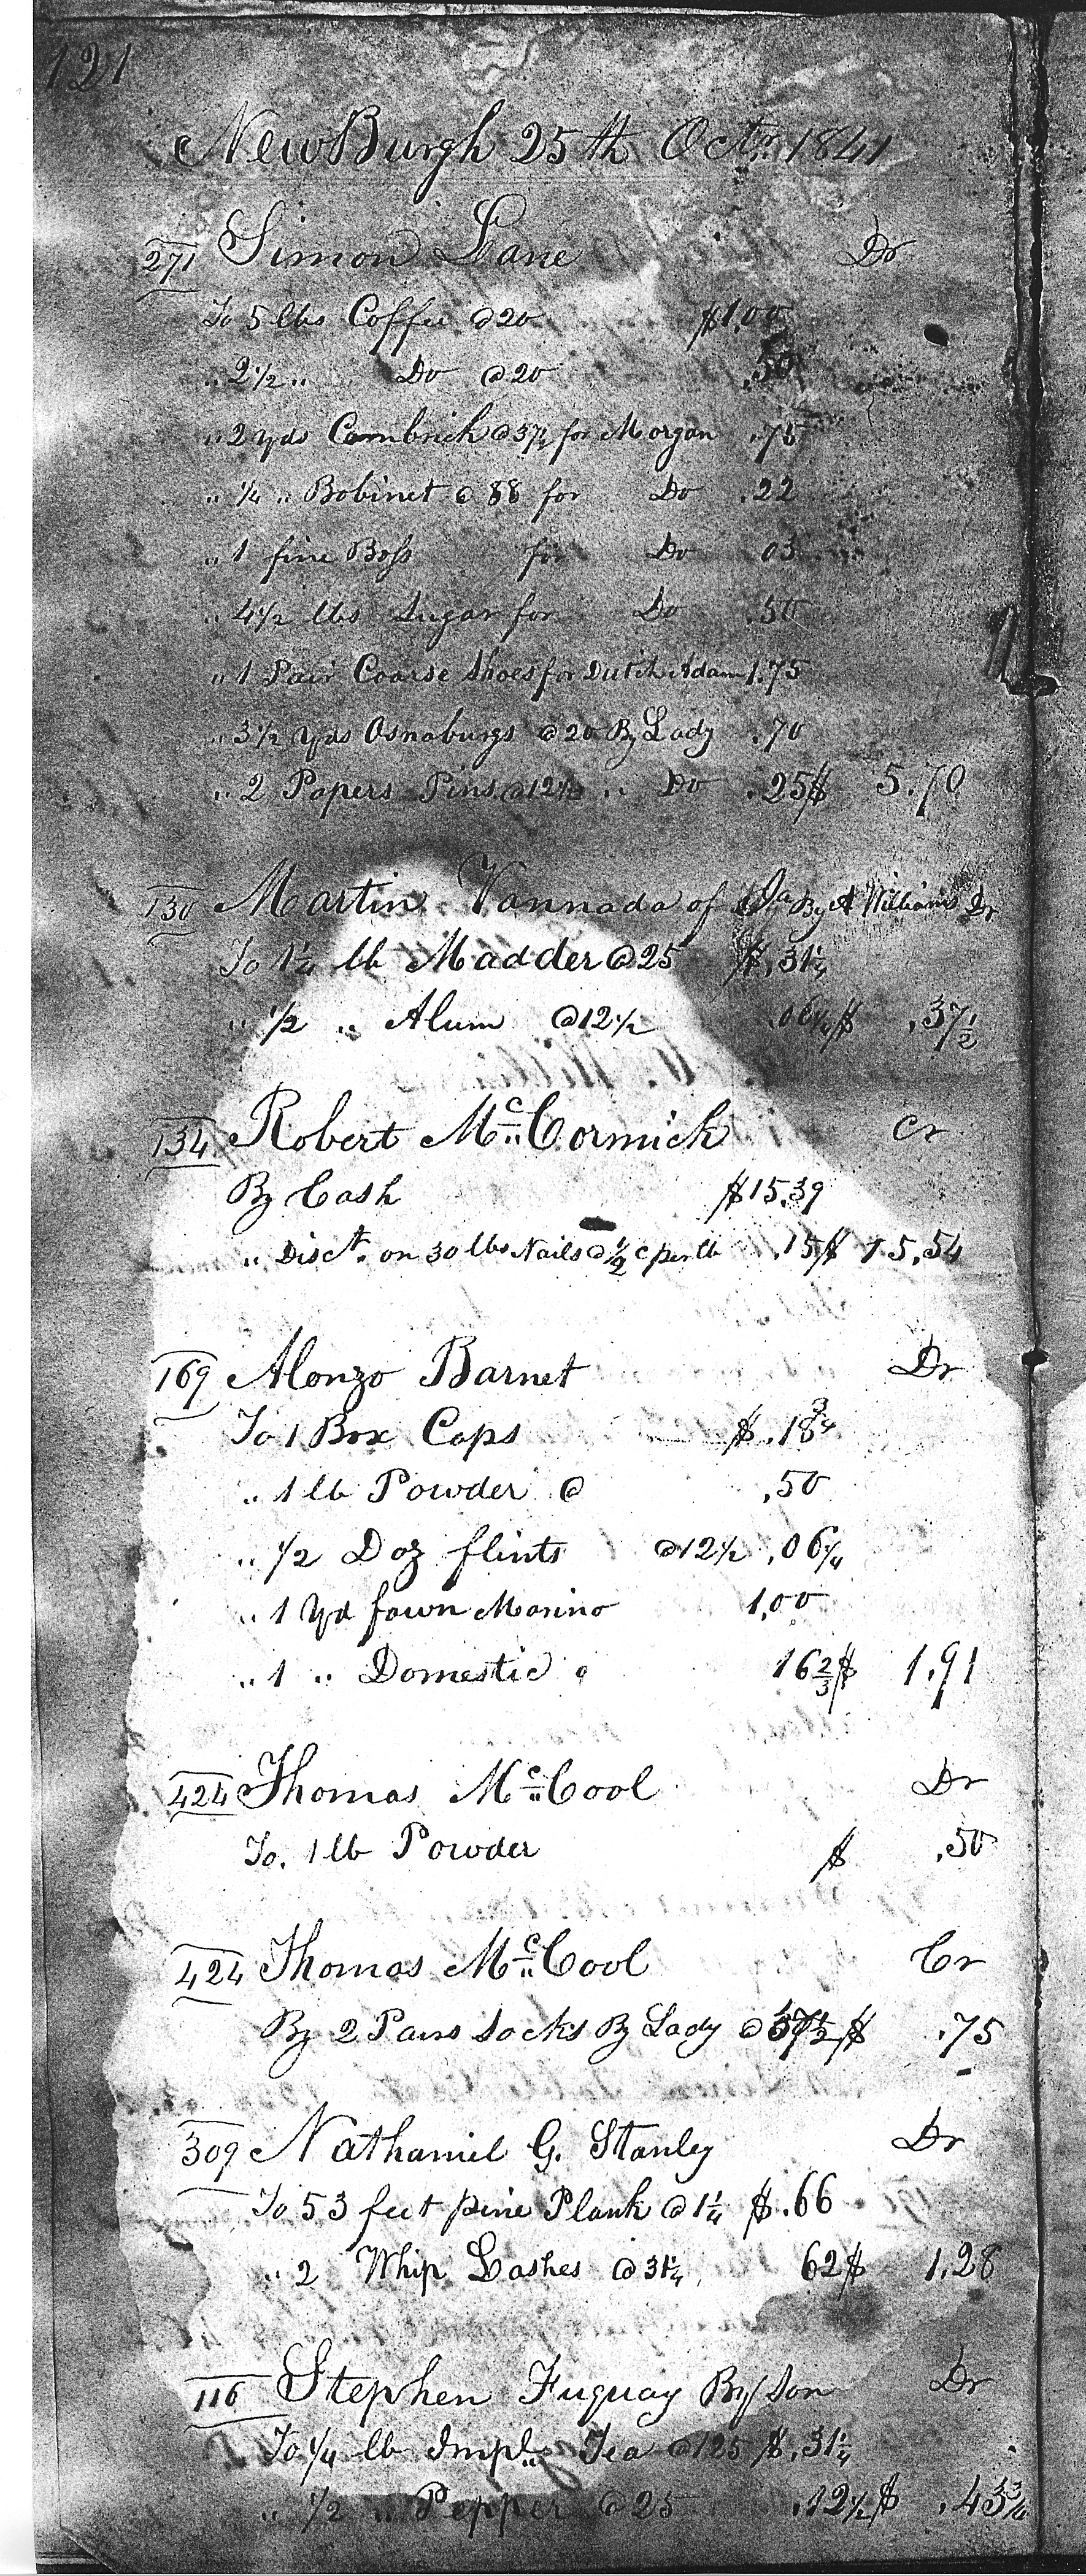 121
NewBurgh 25th Octr. 1841
271 Simon Lane Dr
To 5 lbs Coffee @20 $1.00
" 2½ " Do @20 .50
" 2 yds Cambrick @37½ for Morgan .75
" ¼ " Bobinet @ 88 for Do .22
" 1 fine Boss for Do 03
" 4½ lbs Sugar for Do .50
" 1 Pair Coarse Shoes for Dutch Adam 1.75
" 3½ Yds Osnaburgs @20 By Lady .70
" 2 Papers Pins @12½ " Do .25 $ 5.70
130 Martin Vannada of By A Williams Dr
To 1¼ lb Madder @25 $.31¼
" ½ " Alum @12½ .06¼ $ .37½
134 Robert Mc Cormick Cr
By Cash $15.39
" Disct. on 30 lbs Nails @ ½ c per lb .15 $ 15.54
169 Alonzo Barnet Dr
To 1 Box Caps $ .18¾
" 1 lb Powder @ .50
" ½ Doz flints @12½ .06¼
" 1 Yd fawn Marino 1.00
" 1 " Domestic @ 16⅔ $ 1.91
424 Thomas Mc Cool Dr
To. 1 lb Powder $ .50
424 Thomas Mc Cool Cr
By 2 Pairs Socks By Lady @37½ $ .75
309 Nathaniel G. Stanley Dr
To 53 feet pine Plank @ 1¼ $.66
" 2 Whip Lashes @ 31¼ 62 $ 1.28
116 Stephen Fuquay By Son Dr
To ¼ lb Impl. Tea @125 $.31¼
" ½ " Pepper @ 25 .12½ $ .43¾